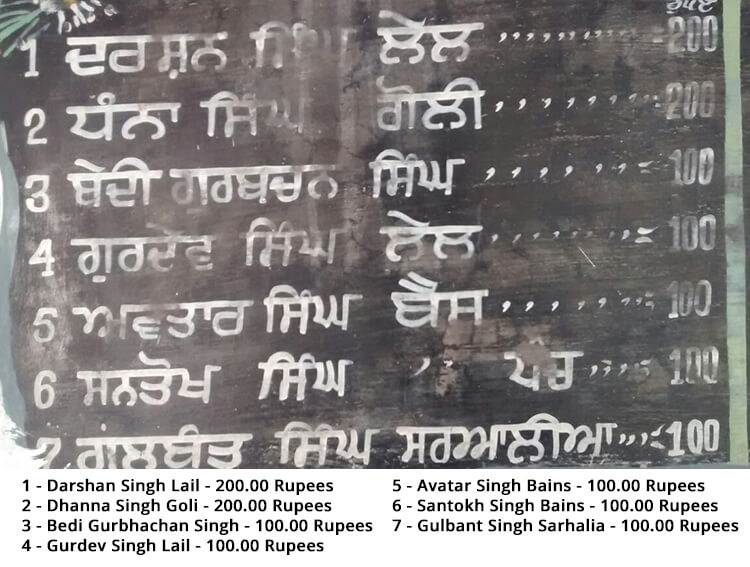 ਰੁਪਏ
1 ਦਰਸ਼ਨ ਸਿੰਘ ਲੇਲ ,,,,,,,,,, 200
2 ਧੰਨਾ ਸਿੰਘ ਗੋਲੀ ,,,,,,,,,, 200
3 ਬੇਦੀ ਗੁਰਬਚਨ ਸਿੰਘ ,,,,,,,,, 100
4 ਗੁਰਦੇਵ ਸਿੰਘ ਲੇਲ ,,,,,,,,, 100
5 ਅਵਤਾਰ ਸਿੰਘ ਬੈਂਸ ,,,,,,,,, 100
6 ਸਨਤੋਖ ਸਿੰਘ ,, ਪੰਚ ,,,,, 100
7 ਗੁਲਬੰਤ ਸਿੰਘ ਸਰਆਲੀਆ ,,,,, 100
1 - Darshan Singh Lail - 200.00 Rupees
2 - Dhanna Singh Goli - 200.00 Rupees
3 - Bedi Gurbhachan Singh - 100.00 Rupees
4 - Gurdev Singh Lail - 100.00 Rupees
5 - Avatar Singh Bains - 100.00 Rupees
6 - Santokh Singh Bains - 100.00 Rupees
7 - Gulbant Singh Sarhalia - 100.00 Rupees